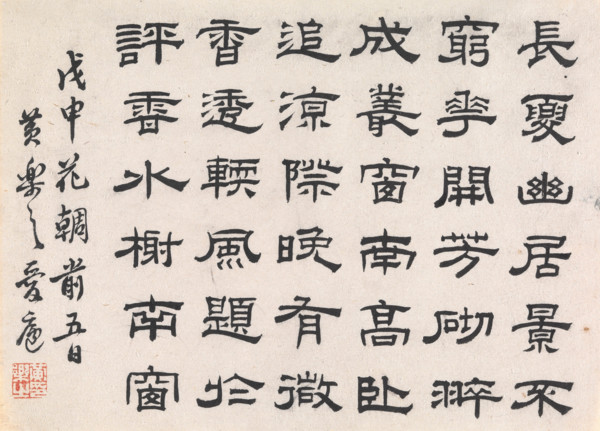 長夏幽居景不
窮花開芳砌翠
成叢窗南高臥
追涼際晚有微
香透輭風題於
評雲水榭南窗
戊申花朝前五日
黃樂之愛廬